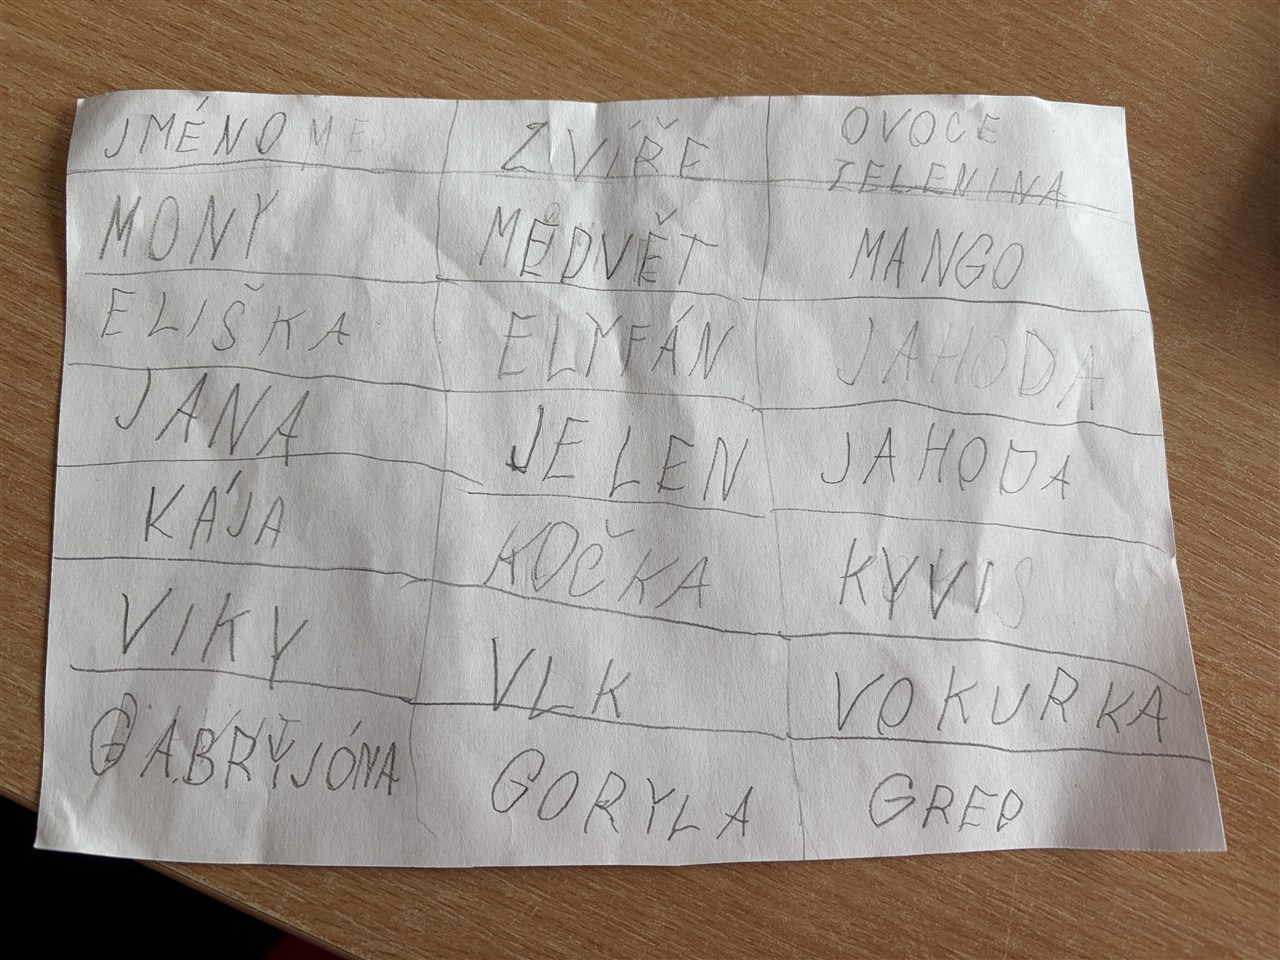 JMÉNO ZVÍŘE OVOCE
ZELENINA
MONY MEDVĚT MANGO
ELIŠKA ELYFÁN JAHODA
JANA JELEN JAHODA
KÁJA KOČKA KYVI
VIKY VLK VOKURKA
GÁBRÝJÓNA GORYLA GREP